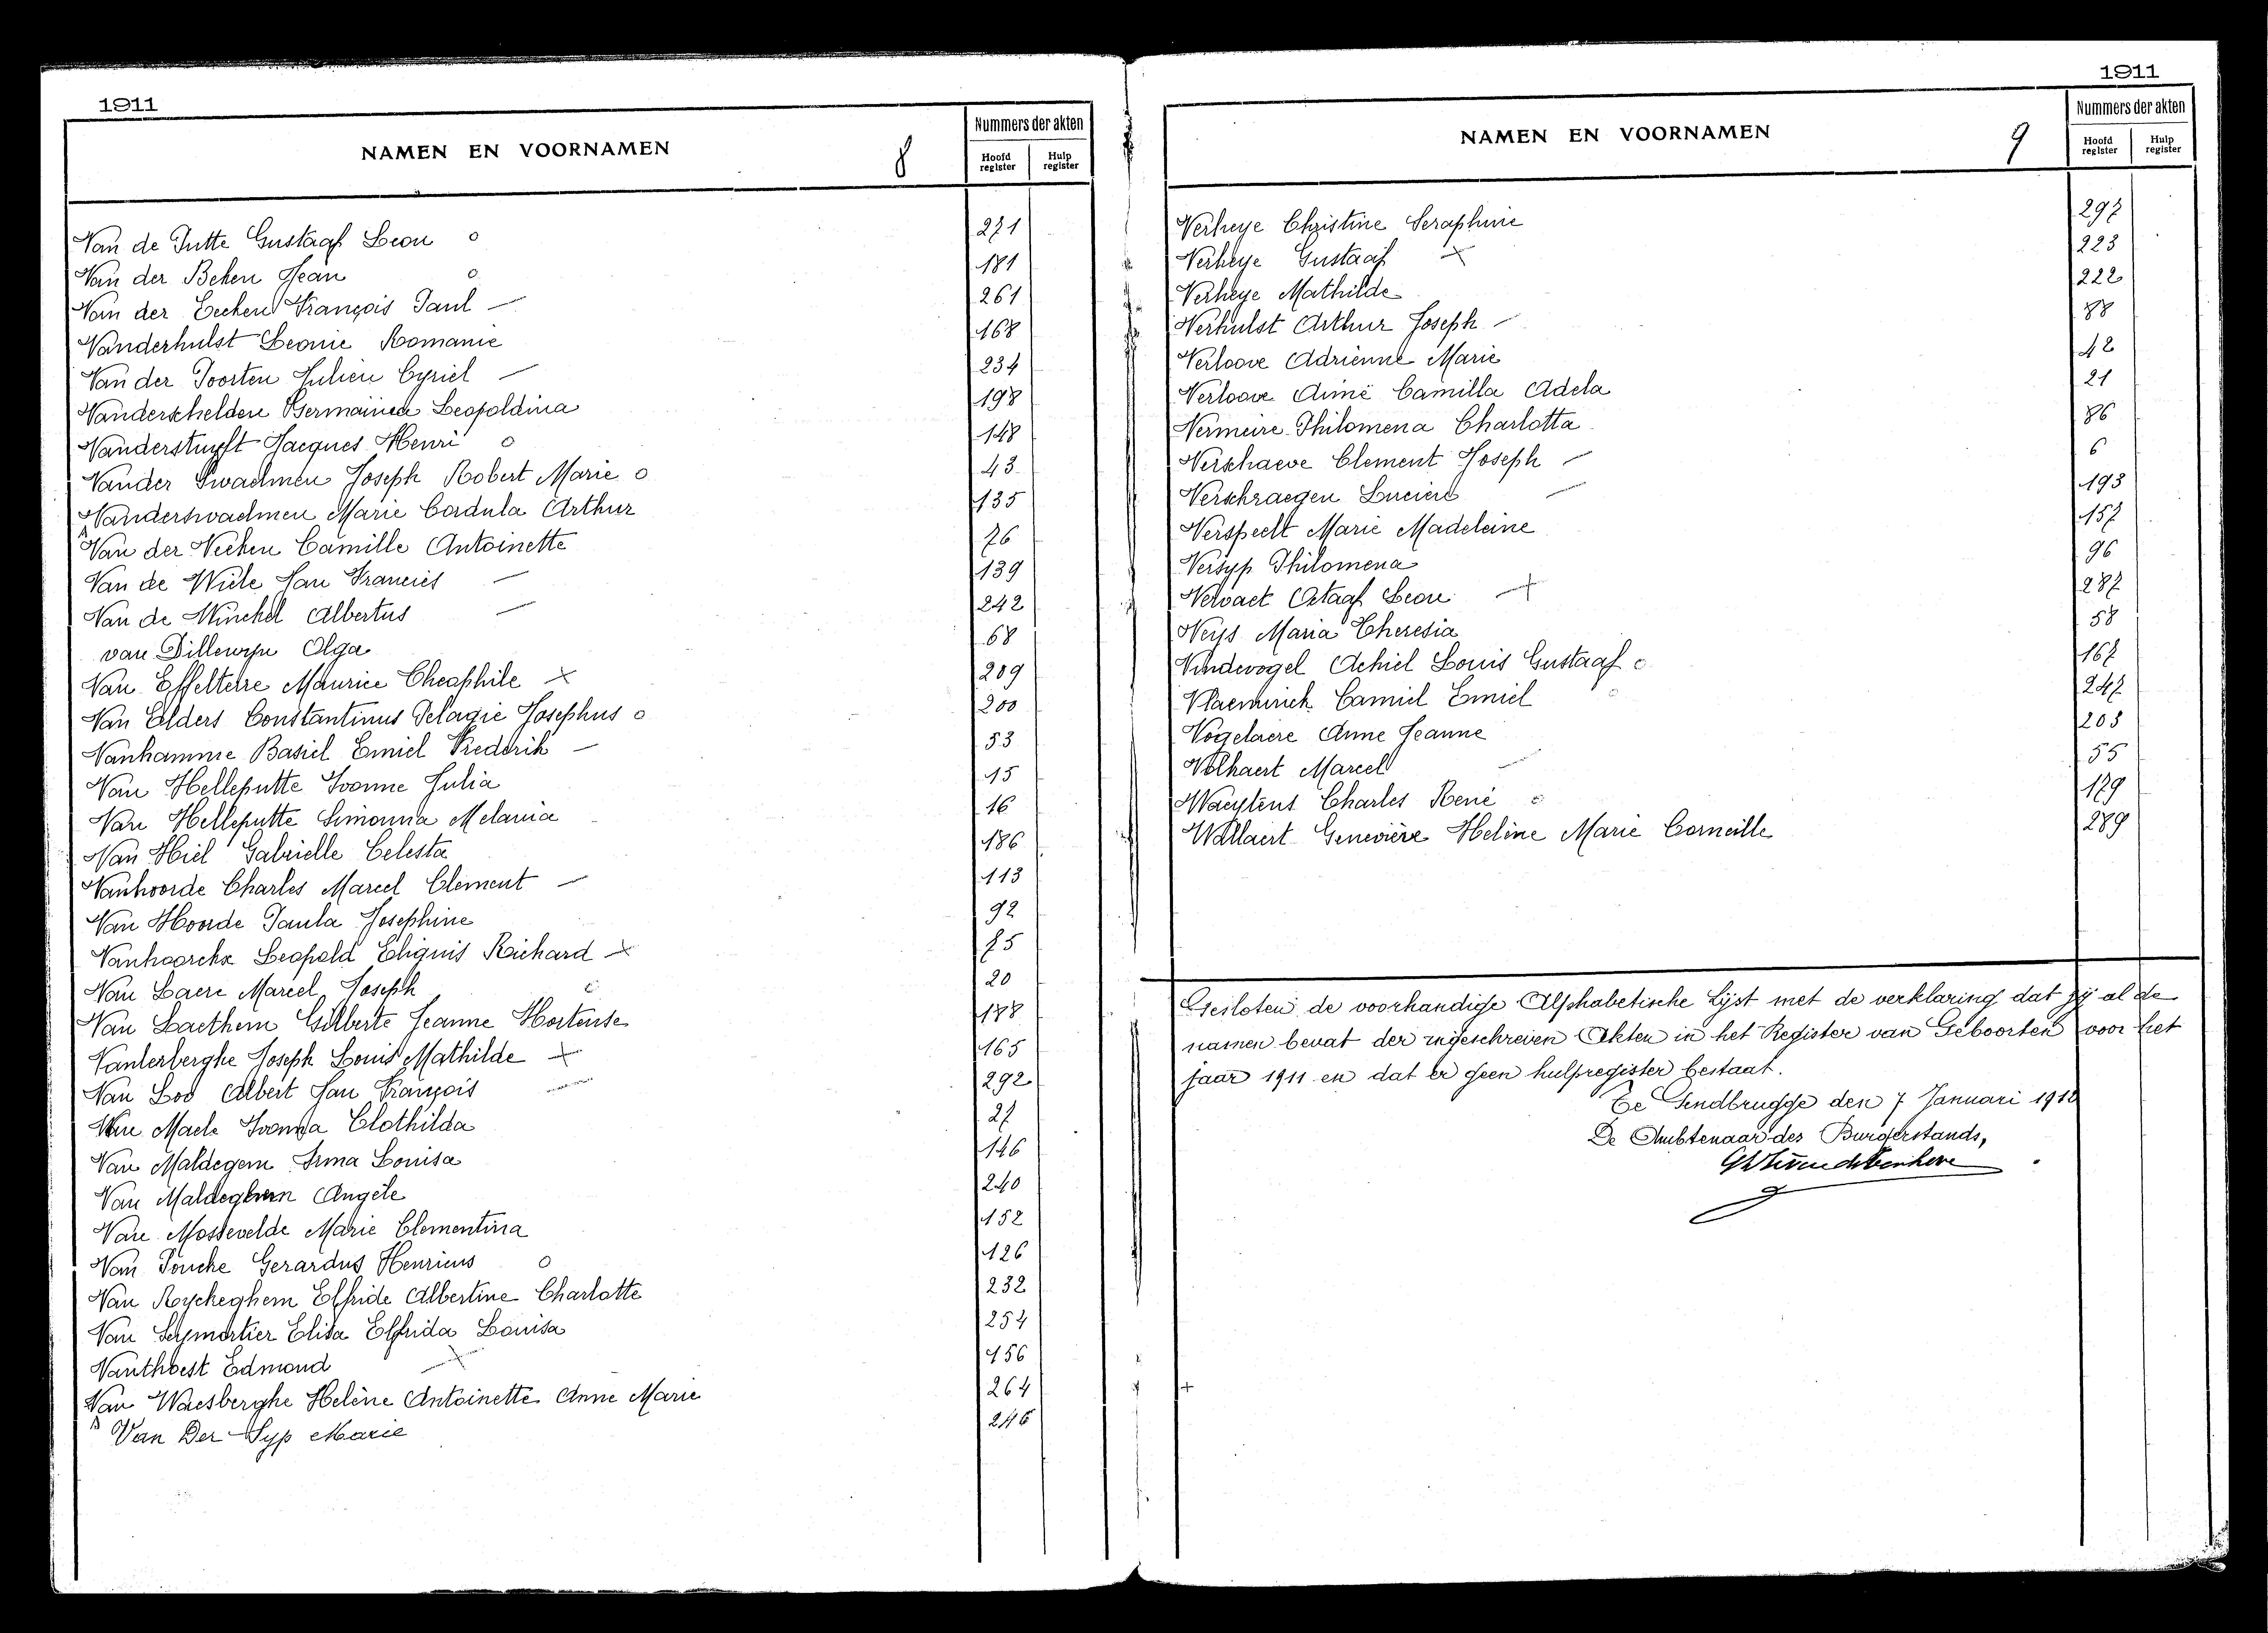 1911
NAMEN EN VOORNAMEN
8
Nummers der akten
Hoofd register
Hulp register
Van de Putte Gustaaf Leon o 271
Van der Beken Jean o 181
Van der Eecken François Paul — 261
Vanderhulst Leonie Romanie 168
Van der Poorten Julien Cyriel — 234
Vanderschelden Germaine Leopoldina 198
Vanderstuyft Jacques Henri o 148
Vander Swaelmen Joseph Robert Marie o 43
Vanderswaelmen Marie Cordula Arthur 135
Van der Vecken Camille Antoinette 76
Van de Wiele Jan Francies — 139
Van de Winckel Albertus — 242
van Dillewyn Olga 68
Van Effelterre Maurice Theophile × 209
Van Elders Constantinus Pelagie Josephus o 200
Vanhamme Basiel Emiel Frederik — 53
Van Helleputte Ivonne Julia 15
Van Helleputte Simonna Melania 16
Van Hiel Gabrielle Celesta 186
Vanhoorde Charles Marcel Clement — 113
Van Hoorde Paula Josephine 92
Vanhoorckx Leopold Richard × 75
Van Laere Marcel Joseph c 20
Van Laethem Gilberte Jeanne Hortense 188
Vanlerberghe Joseph Louis Mathilde × 165
Van Loo Albert Jan François — 292
Van Maele Ivonna Clothilda 27
Van Maldegem Irma Louisa 146
Van Maldeghem Angèle 240
Van Mossevelde Marie Clementina 152
Van Poucke Gerardus Henricus o 126
Van Ryckeghem Elfride Albertine Charlotte 232
Van Seymortier Elisa Elfrida Louisa 254
Vanthoest Edmond × 156
Van Waesberghe Helène Antoinette Anne Marie 264
Van Der Syp Marie 246
1911
NAMEN EN VOORNAMEN
9
Nummers der akten
Hoofd register
Hulp register
Verheye Christine Seraphine 297
Verheye Gustaaf × 223
Verheye Mathilde 222
Verhulst Arthur Joseph — 88
Verloove Adrienne Marie 42
Verloove Aimé Camilla Adela 21
Vermeire Philomena Charlotta 86
Verschaeve Clement Joseph — 6
Verschraegen Lucien — 193
Verspeelt Marie Madeleine 157
Versyp Philomena 96
Vervaet Octaaf Leon + 287
Veys Maria Theresia 58
Vindevogel Achiel Louis Gustaaf o 167
Vlaeminck Camiel Emiel o 247
Vogelaere Anne Jeanne 203
Volkaert Marcel — 55
Waeytens Charles René c 179
Wallaert Geneviève Helène Marie Corneille 289
Gesloten de voorhandige Alphabetische Lijst met de verklaring dat zij al de
namen bevat der ingeschreven Akten in het Register van Geboorten voor het
jaar 1911 en dat er geen hulpregister bestaat.
Te Gendbrugge den 7 Januari 1912
De Ambtenaar des Burgerstands,
+